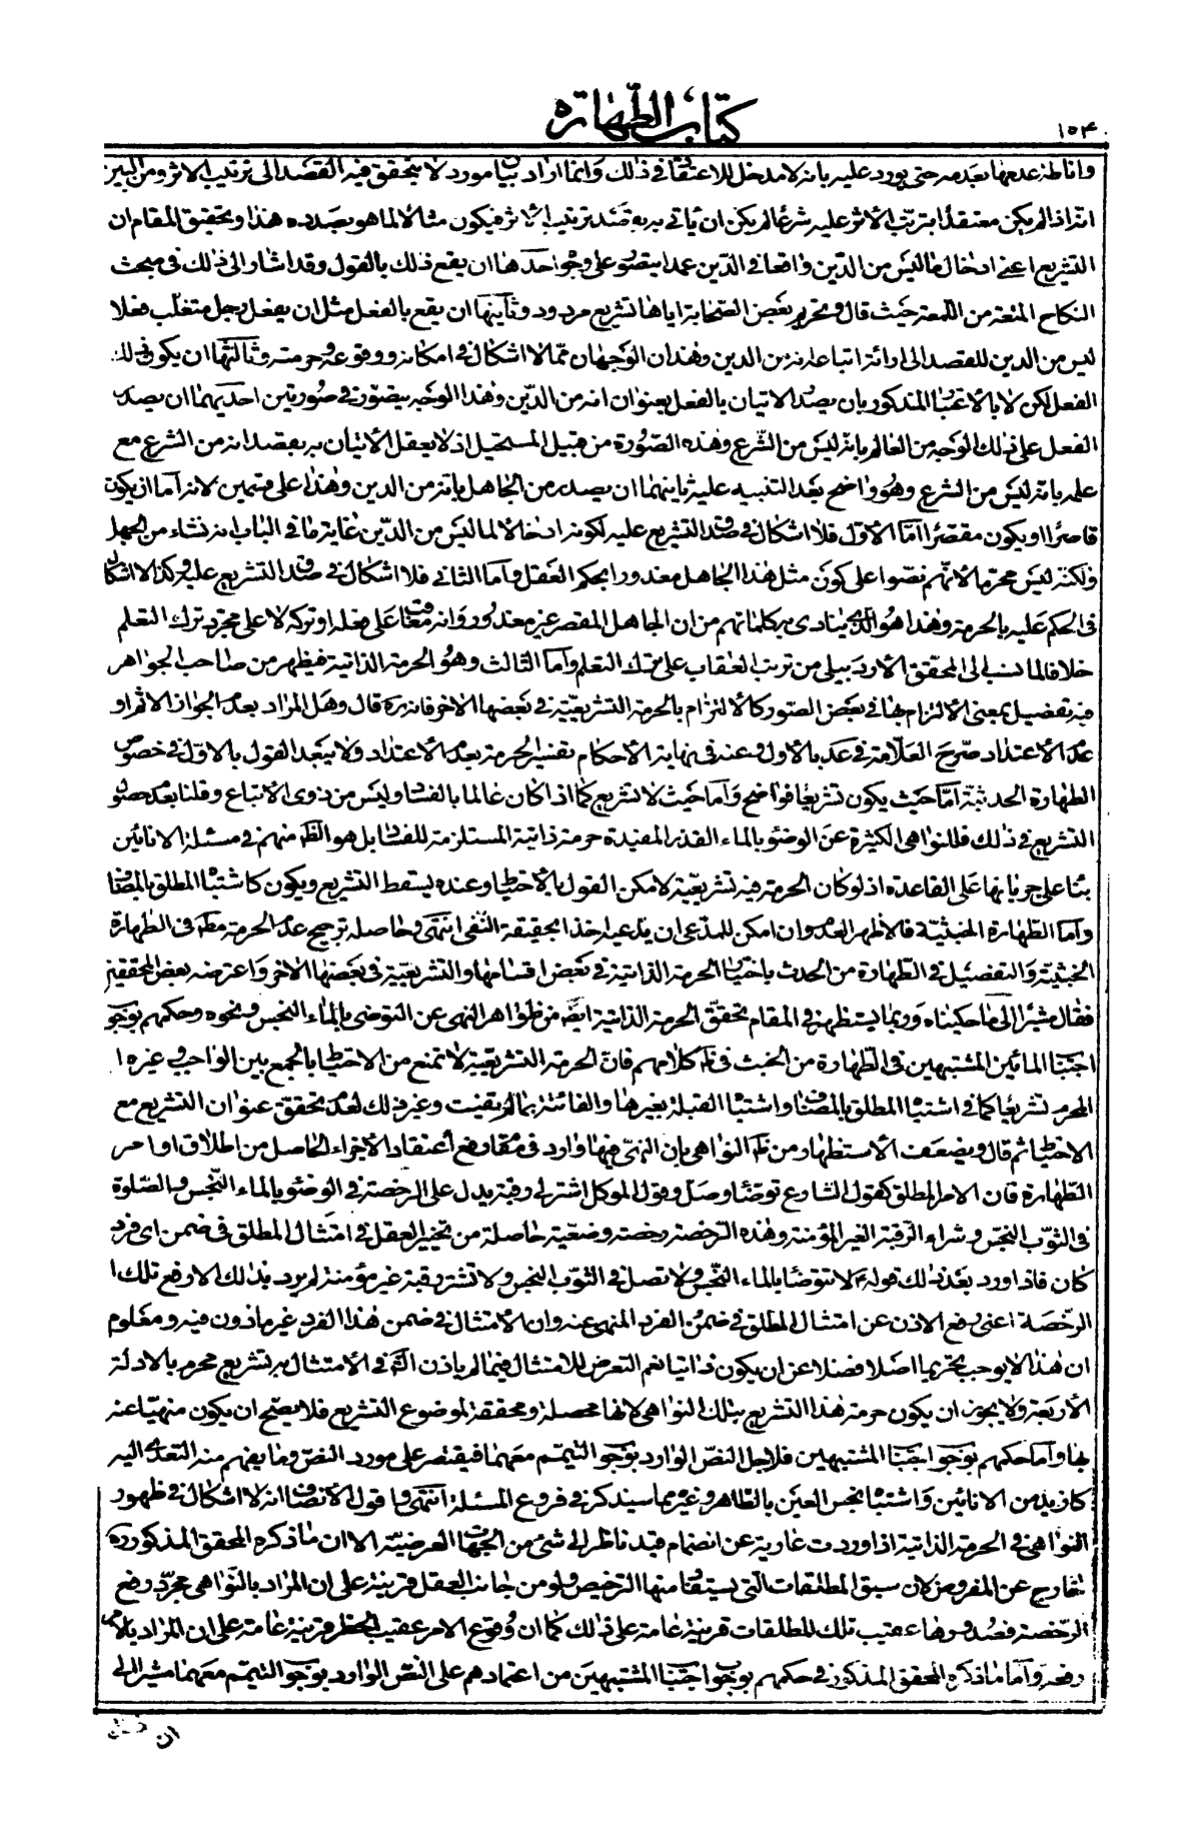 ١٥٤
كتاب الطهارة
واناطة عدمها بعدمه حتى يورد عليه بانه لا مدخل للاعتقاد في ذلك وانما اراد بيان مورد لا يتحقق فيه القصد الى ترتيب الاثر ومن البين
انه اذا لم يكن معتقدا بترتب الأثر عليه شرعا لم يكن ان يأتي به بقصد ترتيب الأثر فيكون مثالا لما هو بصدده هذا وتحقيق المقام ان
التشريع اعني ادخال ما ليس من الدين واقعا في الدين عمدا يتصور على وجوه احدها ان يقع ذلك بالقول وقد اشار الى ذلك في مبحث
النكاح المتعة من اللمعة حيث قال وتحريم بعض الصحابة اياها تشريع مردود وثانيها ان يقع بالفعل مثل ان يفعل رجل متغلب فعلا
ليس من الدين للقصد الى اراءة اتباعه انه من الدين وهذان الوجهان مما لا اشكال في امكانه ووقوعه وحرمته وثالثها ان يكون ذلك
الفعل لكن لا بالاعتبار المذكور بان يصدر الاتيان بالفعل بعنوان انه من الدين وهذا الوجه يتصور في صورتين احديهما ان يصدر
الفعل على ذلك الوجه من العالم بانه ليس من الشرع وهذه الصورة من قبيل المستحيل اذ لا يعقل الأتيان به بقصد انه من الشرع مع
علمه بانه ليس من الشرع وهو واضح بعد التنبيه عليه ثانيتهما ان يصدر من الجاهل بانه من الدين وهذا على قسمين لانه اما ان يكون
قاصرا او يكون مقصرا اما الأول فلا اشكال في صدق التشريع عليه لكونه ادخالا لما ليس من الدين غاية ما في الباب انه نشاء من الجهل
ولكنه ليس محرما لانهم نصوا على كون مثل هذا الجاهل معذورا بحكم العقل واما الثاني فلا اشكال في صدق التشريع عليه وكذا لا اشكال
في الحكم عليه بالحرمة وهذا هو الذي ينادى به كلماتهم من ان الجاهل المقصر غير معذور وانه معاقب على فعله او تركه لا على مجرد ترك التعلم
خلافا لما نسب الى المحقق الأردبيلي من ترتب العقاب على ترك التعلم واما الثالث وهو الحرمة الذاتية فيظهر من صاحب الجواهر
فيه تفصيل بمعنى الالتزام بها في بعض الصور كالألتزام بالحرمة التشريعية في بعضها الاخر فانه ره قال وهل المراد بعدم الجواز الاثم او
عدم الأعتداد صرح العلامة في عد بالأول وعنه في نهاية الأحكام تفسير الحرمة بعدم الأعتداد ولا يبعد القول بالاول في خصوص
الطهارة الحدثية اما حيث يكون تشريعا فواضح واما حيث لا تشريع كما اذا كان عالما بالفساد وليس من ذوى الاتباع وقلنا بعدم حصول
التشريع في ذلك فللنواهي الكثيرة عن الوضوء بالماء القذر المفيدة حرمة ذاتية المستلزمة للفساد بل هو الظ منهم في مسئلة الانائين
بناء على جريانها على القاعدة اذ لو كان الحرمة فيه تشريعية لامكن القول بالاحتياط وعنده يسقط التشريع ويكون كاشتباه المطلق بالمضاف
واما الطهارة الخبثية فالأظهر العدم وان امكن للمدعي ان يدعيه اخذا بحقيقة النفي انتهى وحاصله ترجيح عدم الحرمة مط في الطهارة
الخبثية والتفصيل في الطهارة من الحدث باختيار الحرمة الذاتية في بعض اقسامها والتشريعية في بعضها الأخر واعترضه بعض المحققين
فقال مشيرا الى ما حكيناه وربما يستظهر في المقام تحقق الحرمة الذاتية ايضا من ظواهر النهى عن التوضى بالماء النجس ونحوه وحكمهم بوجوب
اجتناب المائين المشتبهين في الطهارة من الخبث في ظ كلامهم فان الحرمة التشريعية لا تمنع من الاحتياط بالجمع بين الواجب وغيره ا
لمحرم تشريعا كما في اشتباه المطلق بالمضاف واشتباه القبلة بغيرها والفائتة بما لم يفت وغير ذلك لعدم تحقق عنوان التشريع مع
الاحتياط ثم قال ويضعف الأستظهار من ظ النواهي بان النهى فيها وارد في مقام رفع أعتقاد الاجزاء الحاصل من اطلاق اوامر
الطهارة فان الامر المطلق كقول الشارع توضا وصل وقول الموكل اشتر لي رقبة يدل على الرخصة في الوضوء بالماء النجس والصلوة
في الثوب النجس وشراء الرقبة الغير المؤمنة وهذه الرخصة رخصة وضعية حاصلة من تخيير العقل في امتثال المطلق في ضمن اى فرد
كان فاذا ورد بعد ذلك قوله لا تتوضأ بالماء النجس ولا تصل في الثوب النجس ولا تشتر رقبة غير مؤمنة لم يرد بذلك الا رفع تلك ا
لرخصة اعني رفع الاذن عن امتثال المطلق في ضمن الفرد المنهي عنه وان الأمتثال في ضمن هذا الفرد غير ماذون فيه ومعلوم
ان هذا لا يوجب تحريما اصلا فضلا عن ان يكون ذاتيا نعم التعرض للامتثال فيما لم ياذن الشارع في الأمتثال به تشريع محرم بالادلة
الأربعة ولا يجوز ان يكون حرمة هذا التشريع بتلك النواهي لانها محصلة ومحققة لموضوع التشريع فلا يصح ان يكون منهيا عنه
بها واما حكمهم بوجوب اجتناب المشتبهين فلاجل النص الوارد بوجوب التيمم معهما فيقتصر على مورد النص وما يفهم منه التعدي اليه
كازيد من الانائين واشتباه نجس العين بالطاهر وغيره مما سيذكر في فروع المسئلة انتهى واقول الانصاف انه لا اشكال في ظهور
النواهي في الحرمة الذاتية اذا وردت عارية عن انضمام قيد ناظر الى شئ من الجهات العرضية الا ان ما ذكره المحقق المذكور ره
خارج عن المفروض لان سبق المطلقات التي يستفاد منها الترخيص ولو من جانب العقل قرينة على ان المراد بالنواهي مجرد رفع
الرخصة فصدورها عقيب تلك المطلقات قرينة عامة على ذلك كما ان وقوع الامر عقيب الحظر قرينة عامة على ان المراد بالامر
رفعه واما ما ذكره المحقق المذكور في حكمهم بوجوب اجتناب المشتبهين من اعتمادهم على النص الوارد بوجوب التيمم معهما مشيرا الى
ان ذلك